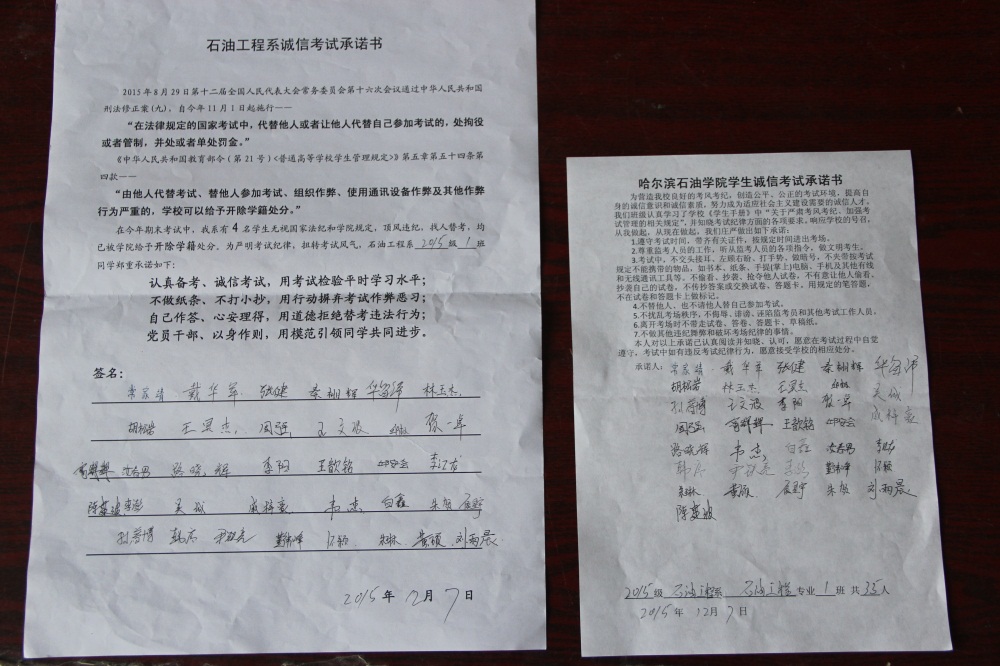 石油工程系诚信考试承诺书
2015年8月29日第十二届全国人民代表大会常务委员会第十六次会议通过中华人民共和国
刑法修正案(九),自今年11月1日起施行——
“在法律规定的国家考试中,代替他人或者让他人代替自己参加考试的,处拘役
或者管制,并处或者单处罚金。”
《中华人民共和国教育部令(第21号)<普通高等学校学生管理规定>》第五章第五十四条第
四款——
“由他人代替考试、替他人参加考试、组织作弊、使用通讯设备作弊及其他作弊
行为严重的,学校可以给予开除学籍处分。”
在今年期末考试中,我系有4名学生无视国家法纪和学院规定,顶风违纪,找人替考,均
已被学院给予开除学籍处分。为严明考试纪律,扭转考试风气,石油工程系2015级1班
同学郑重承诺如下:
认真备考、诚信考试,用考试检验平时学习水平;
不做纸条、不打小抄,用行动摒弃考试作弊恶习;
自己作答、心安理得,用道德拒绝替考违法行为;
党员干部、以身作则,用模范引领同学共同进步。
签名:
戴华军 张健 林玉杰
周强 王文波
路晓辉 李阳 王歆铭
吴斌 韦杰 白鑫 朱贺
刘雨晨
2015年12月7日
哈尔滨石油学院学生诚信考试承诺书
为营造我校良好的考风考纪,创造公平、公正的考试环境,提高自
身的诚信意识和诚信素质,努力成为适应社会主义建设需要的诚信人才,
我们班级认真学习了学校《学生手册》中“关于严肃考风考纪、加强考
试管理的相关规定”,并知晓考试纪律方面的各项要求,响应学校的号召,
从我做起,从现在做起,我们庄严做出如下承诺:
1.遵守考试时间,带齐有关证件,按规定时间进出考场。
2.尊重监考人员的工作,听从监考人员的各项指令,做文明考生。
3.考试中,不交头接耳、左顾右盼、打手势、做暗号,不夹带按考试
规定不能携带的物品,如书本、纸条、手提(掌上)电脑、手机及其他有线
和无线通讯工具等,不偷看、抄袭、抢夺他人试卷,不有意让他人偷看、
抄袭自己的试卷,不传抄答案或交换试卷、答题卡,用规定的笔答题,
不在试卷和答题卡上做标记。
4.不替他人、也不请他人替自己参加考试。
5.不扰乱考场秩序,不侮辱、诽谤、诬陷监考员和其他考试工作人员。
6.离开考场时不带走试卷、答卷、答题卡、草稿纸。
7.不做其他违纪舞弊和破坏考场纪律的事情。
本人对以上承诺已认真阅读并知晓、认可,愿意在考试过程中自觉
遵守,考试中如有违反考试纪律行为,愿意接受学校的相应处分。
承诺人: 戴华军 张健
林玉杰 吴斌
王文波 李阳
周强 王歆铭
路晓辉 韦杰 白鑫
朱贺 刘雨晨
2015级 石油工程系 石油工程专业 1班 共35人
2015年12月7日